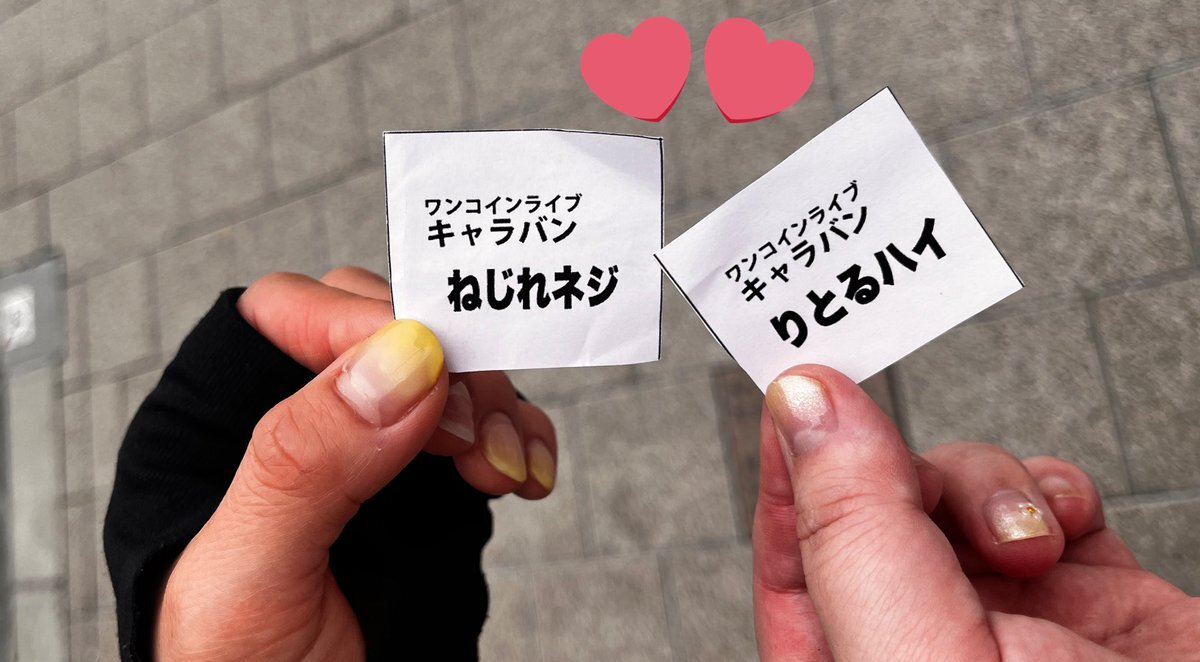 ワンコインライブ
キャラバン
ねじれネジ
ワンコインライブ
キャラバン
りとるハイ